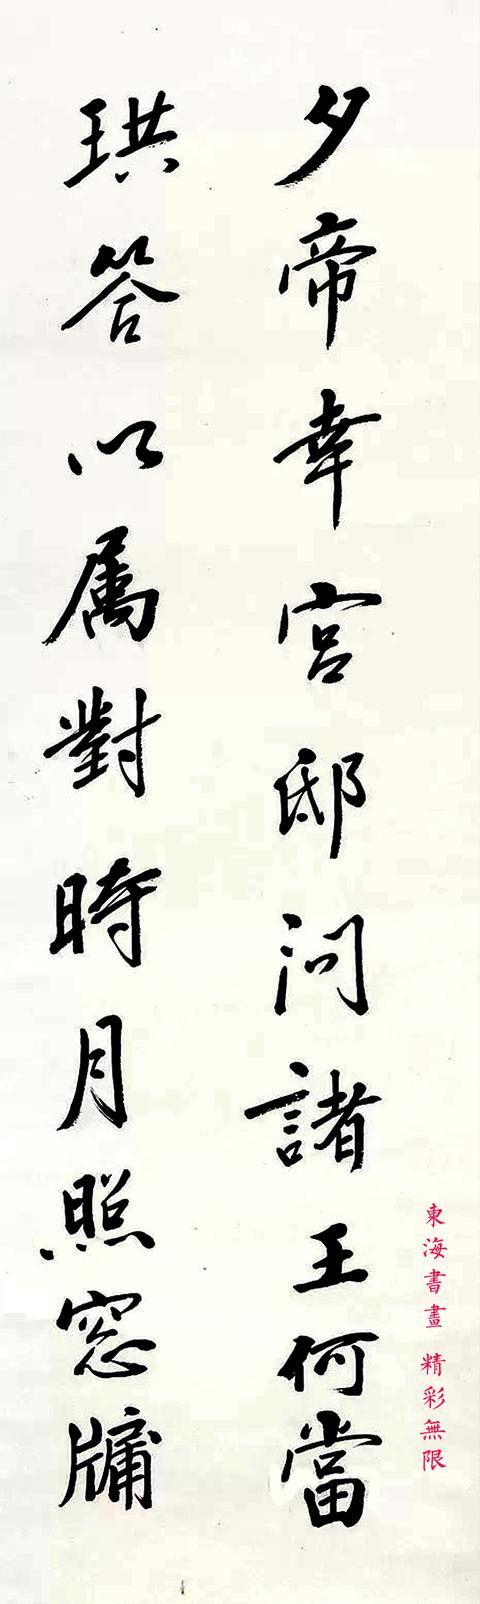 夕帝幸宮邸问諸王何當
珙答以属對時月照窓牖
東海書畫 精彩無限